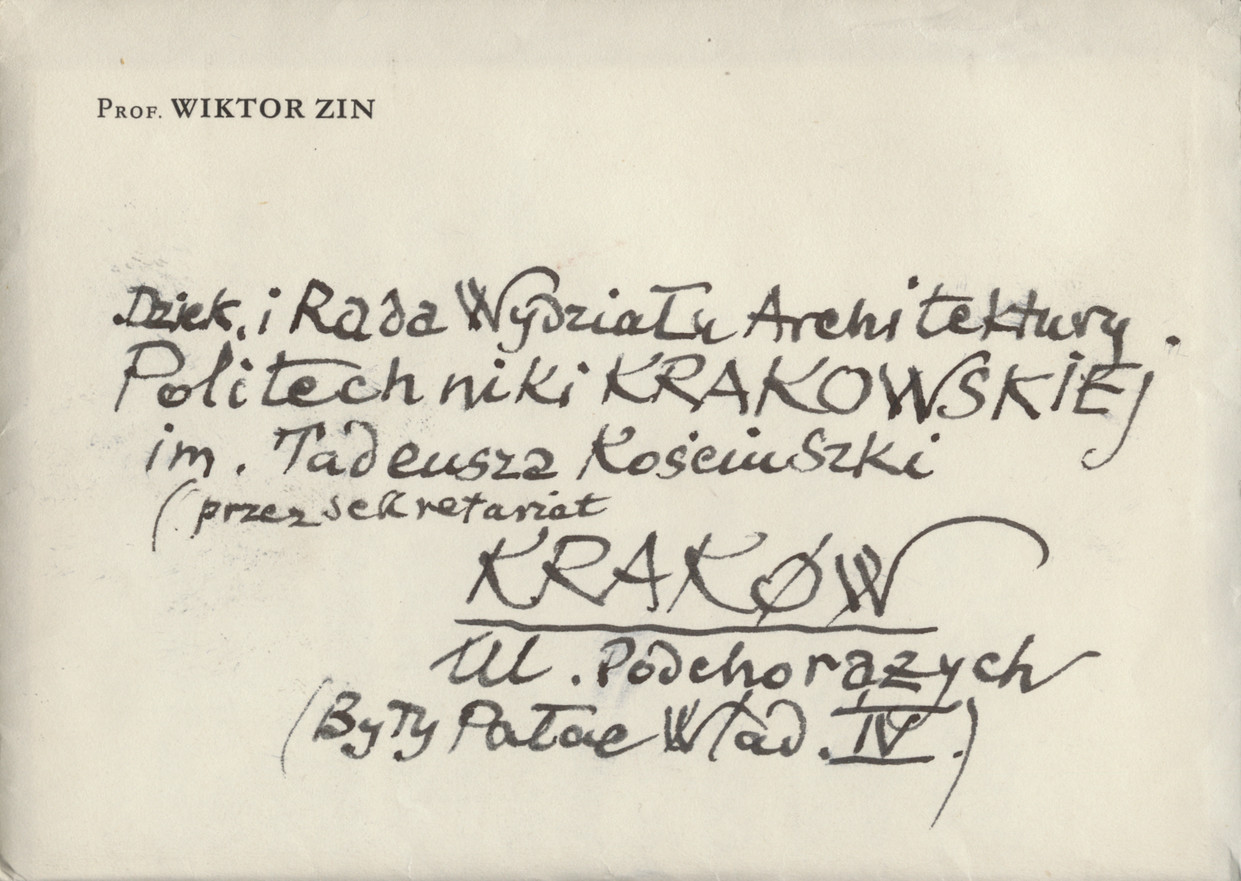 Prof. WIKTOR ZIN
Dziek. i Rada Wydziału Architektury.
Politechniki KRAKOWSKIEJ
im. Tadeusza Kościuszki
(przez sekretariat
KRAKÓW
Ul. Podchorążych
(Były Pałac Wład. IV.)